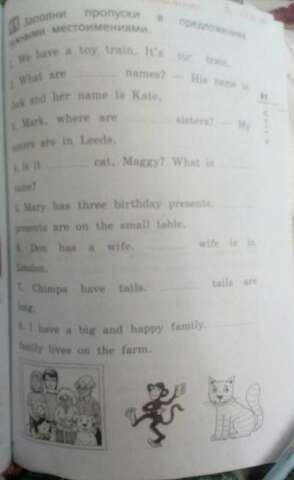 Заполни пропуски в предложения
нужными местоимениями.
1. We have a toy train. It's our train.
2. What are ______ names? — His name is
Jack and her name is Kate.
3. Mark, where are ______ sisters? — My
sisters are in Leeds.
4. Is it ______ cat, Maggy? What is ______
name?
5. Mary has three birthday presents. ______
presents are on the small table.
6. Don has a wife. ______ wife is in
London.
7. Chimps have tails. ______ tails are
long.
8. I have a big and happy family. ______
family lives on the farm.